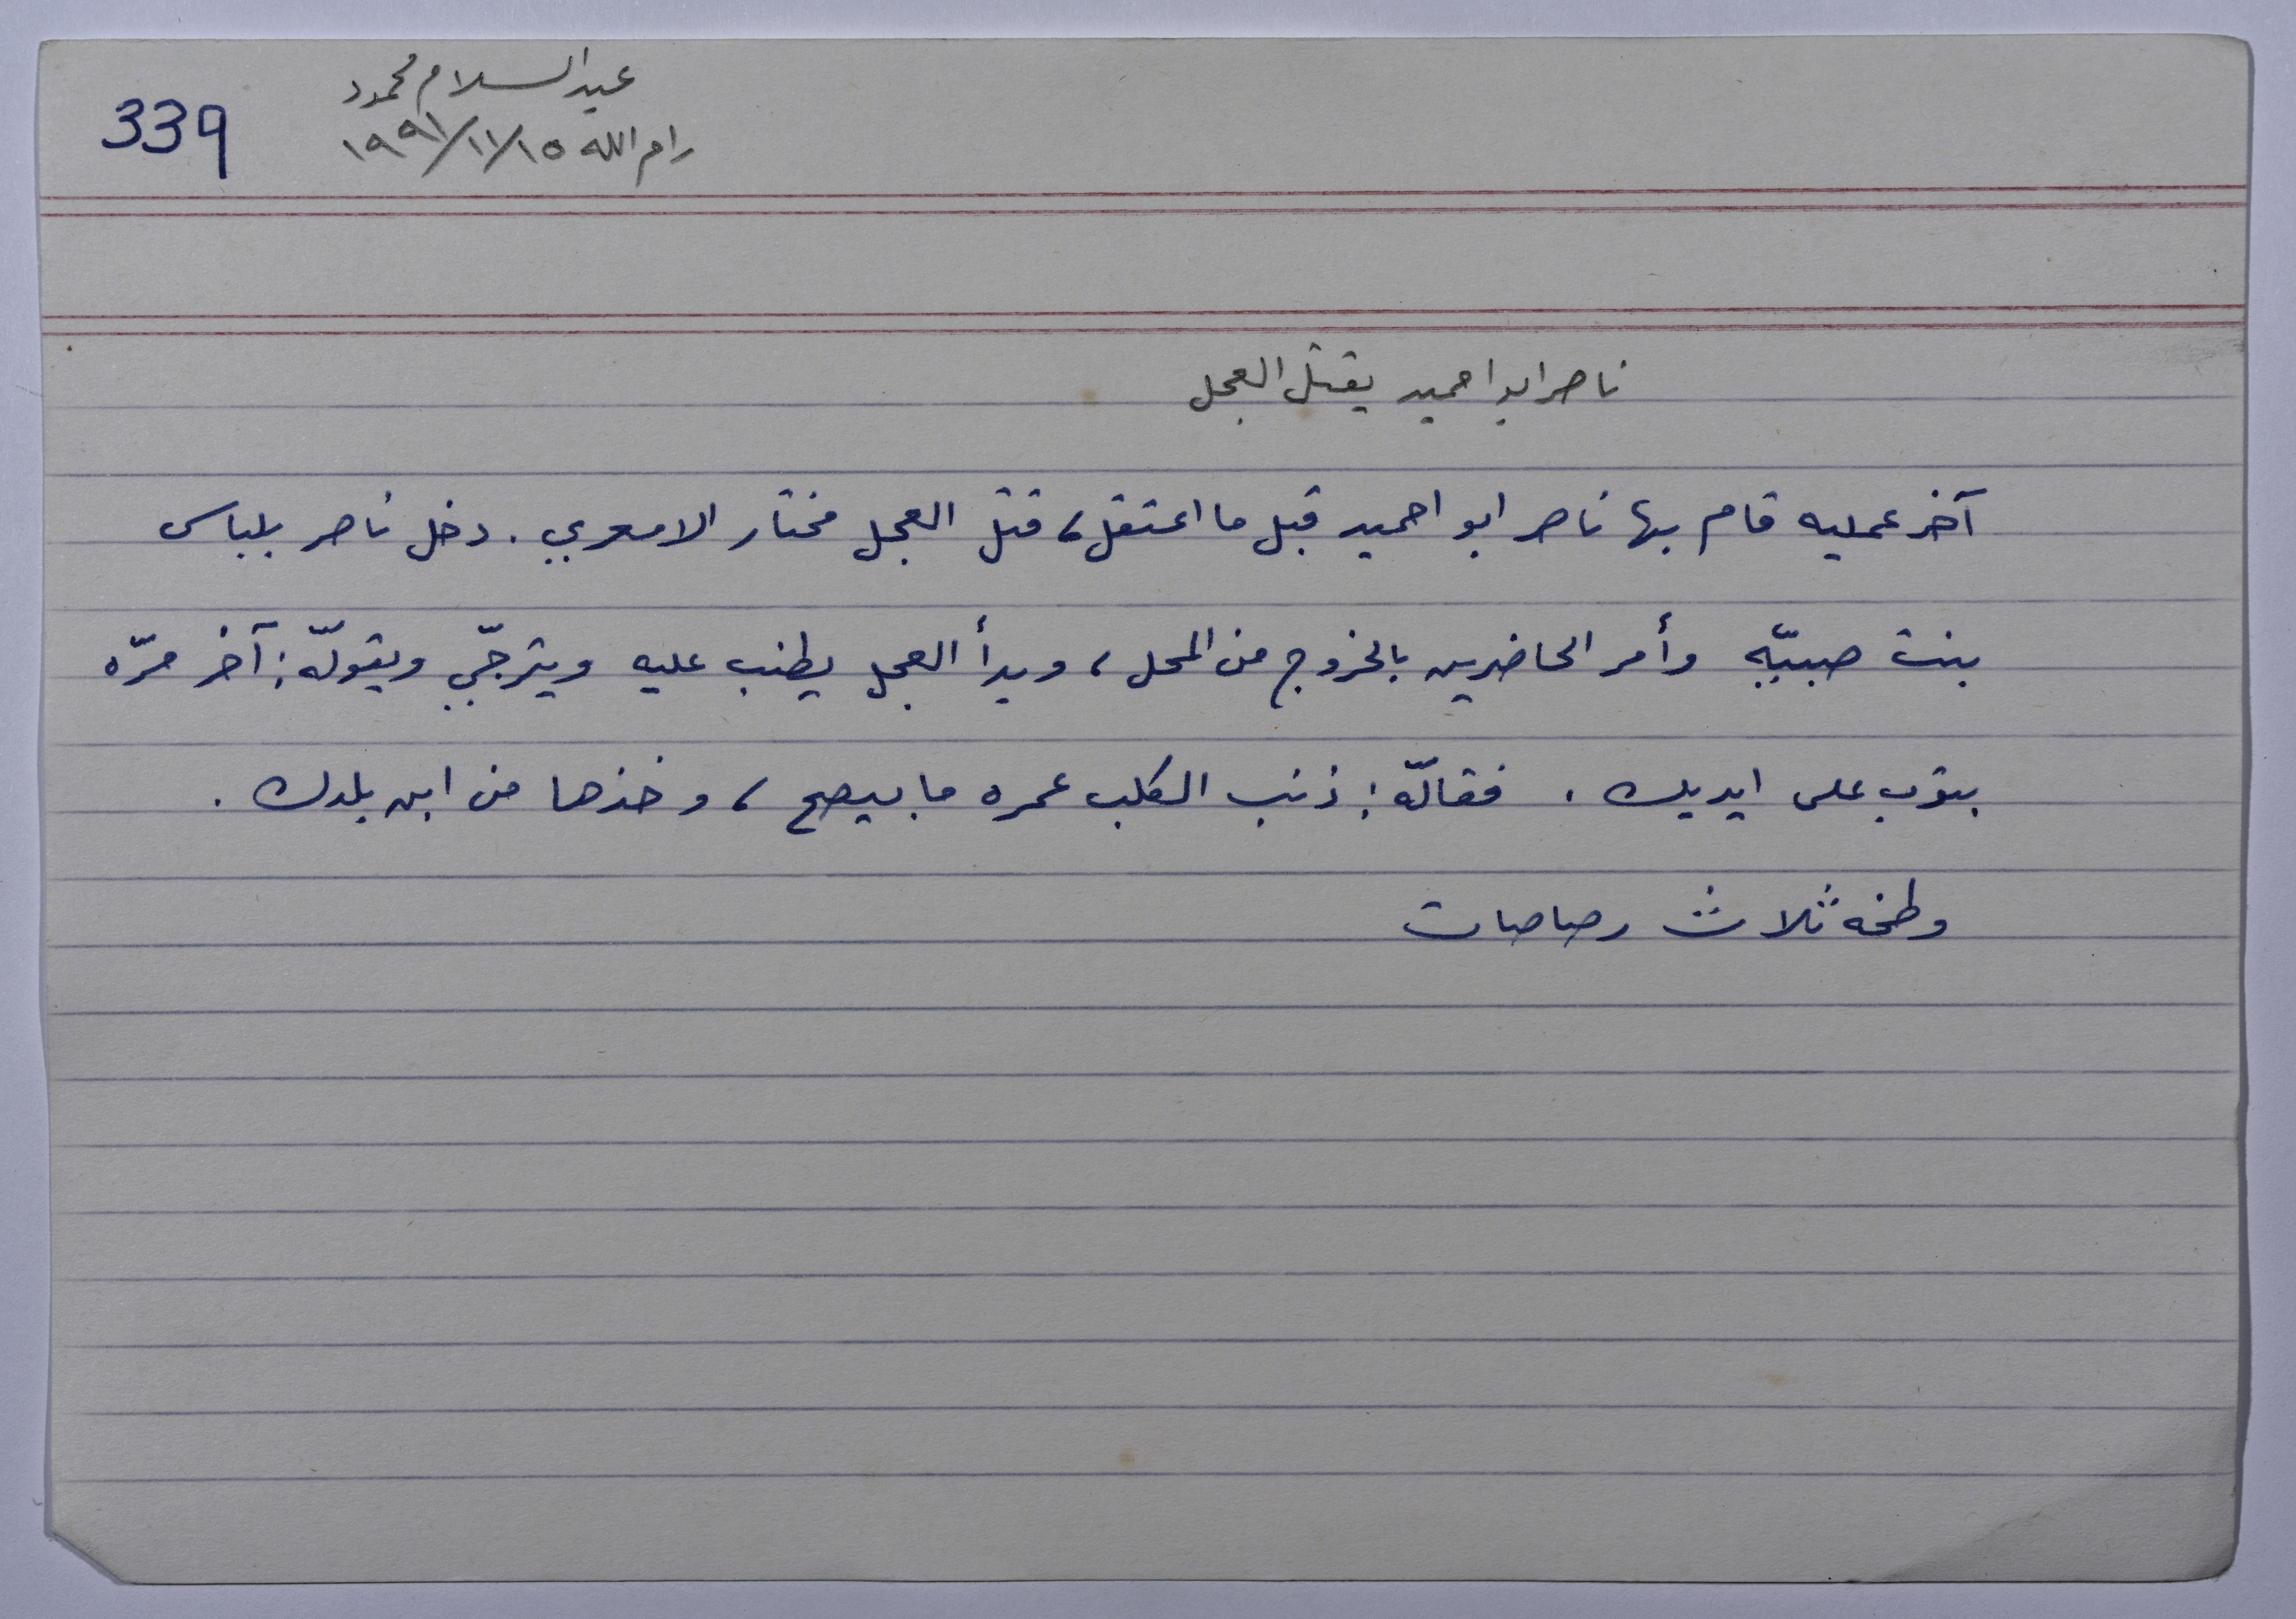 عبد السلام محمود
339
رام الله ١٥/١١/١٩٩١
ناصر ابو احميد يقتل العجل
آخر عمليه قام بها ناصر ابو احميد قبل ما اعتقل، قتل العجل مختار الامعري. دخل ناصر بلباس
بنت صبيّه وأمر الحاضرين بالخروج من المحل، وبدأ العجل يطنب عليه ويترجّى ويقولّه: آخر مرّه
بتوب على ايديك. فقالّه: ذنب الكلب عمره ما بيصح، وخذها من ابن بلدك.
وطخه ثلاث رصاصات